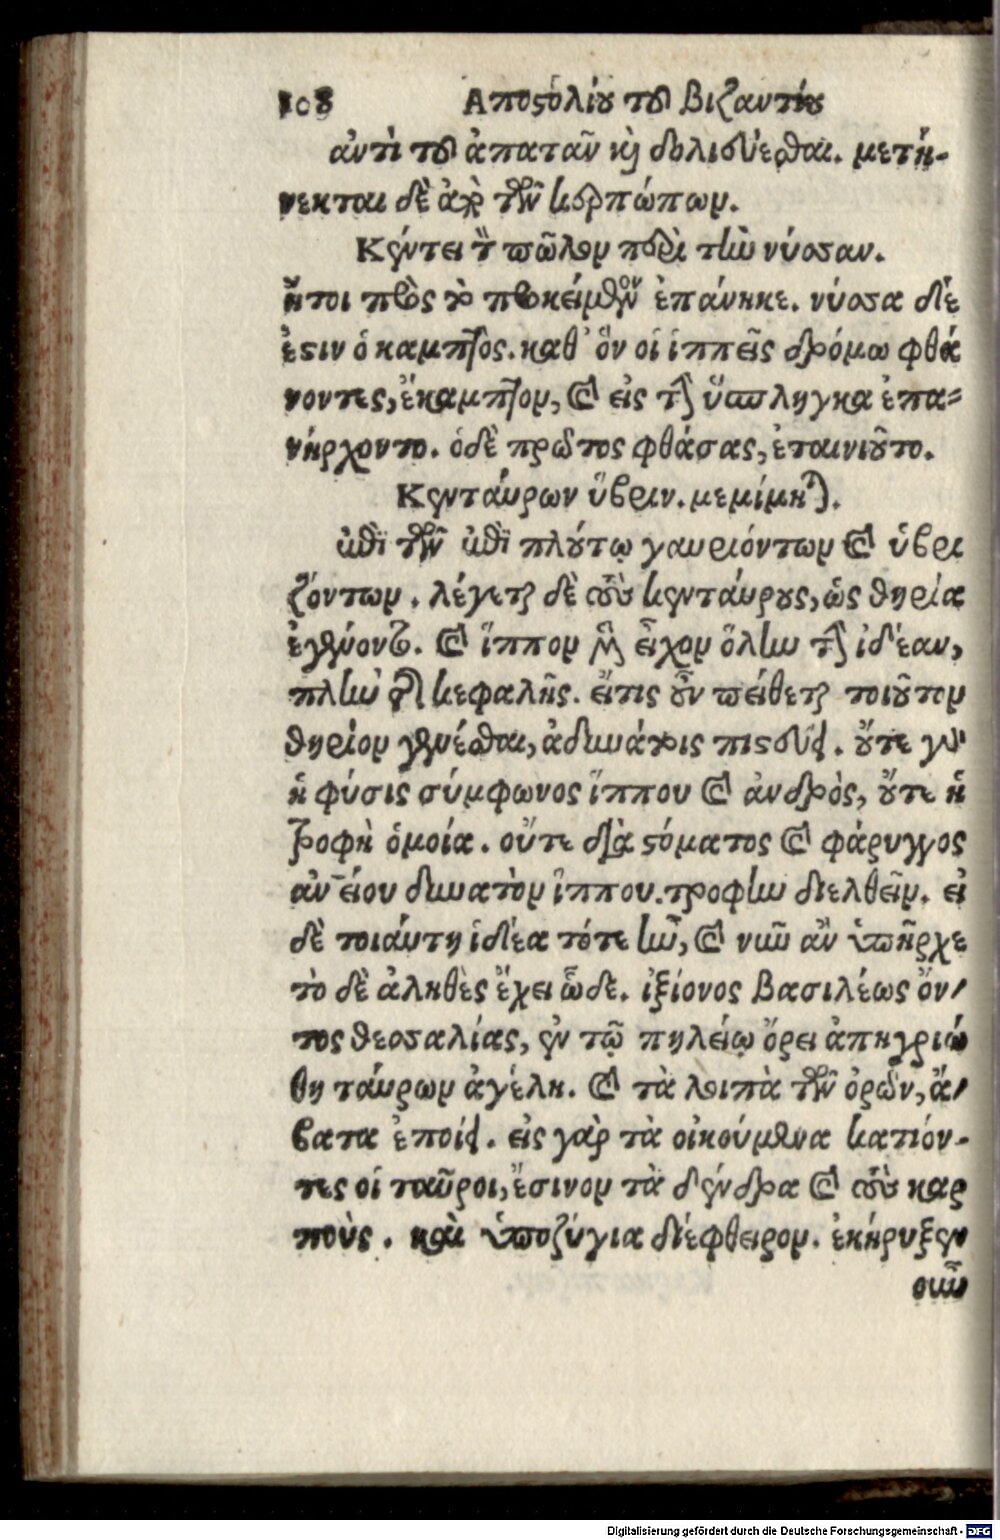 108 Αποστολίου τοῦ Βιζαντίου
ἀντὶ τοῦ ἀπατᾶν καὶ δολιεύεσθαι. μετή-
νεκται δὲ ἀπὸ τῶν κερκώπων.
Κέντει τὸν πῶλον περὶ τὴν νύσσαν.
ἤτοι πρὸς τὸ προκείμενον ἐπάνηκε. νύσσα δέ
ἐστιν ὁ καμπτός. καθ' ὃν οἱ ἱππεῖς δρόμω φθά
νοντες, ἔκαμπτον, καὶ εἰς τὴν ὕσπληγκα ἐπα-
νήρχοντο. ὁδὲ πρῶτος φθάσας, ἐταινιοῦτο.
Κενταύρων ὕβριν. μεμίμηται.
ἐπὶ τῶν ἐπὶ πλούτῳ γαυριόντων καὶ ὑβρι
ζόντων. λέγεται δὲ τοὺς κενταύρους, ὡς θηρία
ἐγένοντο. καὶ ἵππου μὲν εἶχον ὅλην τὴν ἰδέαν,
πλὴν τῆς κεφαλῆς. εἴτις οὖν πείθεται τοιοῦτον
θηρίον γενέσθαι, ἀδυνάτοις πιστεύει. οὔτε γὰρ
ἡ φύσις σύμφωνος ἵππου καὶ ἀνδρὸς, οὔτε ἡ
τροφὴ ὁμοία. οὔτε διὰ στόματος καὶ φάρυγγος
ἀνείου δυνατὸν ἵππου. τροφὴν διελθεῖν. εἰ
δὲ τοιαύτη ἰδέα τότε ἦν, καὶ νῦν ἂν ὑπῆρχε
τὸ δὲ ἀληθὲς ἔχει ὧδε. ἰξίονος βασιλέως ὄν-
τος θεσσαλίας, ἐν τῷ πηλείῳ ὄρει ἀπηγριώ
θη ταύρων ἀγέλη. καὶ τὰ λοιπὰ τῶν ὀρῶν, ἄ-
βατα ἐποίει. εἰς γὰρ τὰ οἰκούμενα κατιόν-
τες οἱ ταῦροι, ἔσινον τὰ δένδρα καὶ τοὺς καρ
ποὺς. καὶ ὑποζύγια διέφθειρον. ἐκήρυξεν
οὖν
Digitalisierung gefördert durch die Deutsche Forschungsgemeinschaft - DFG